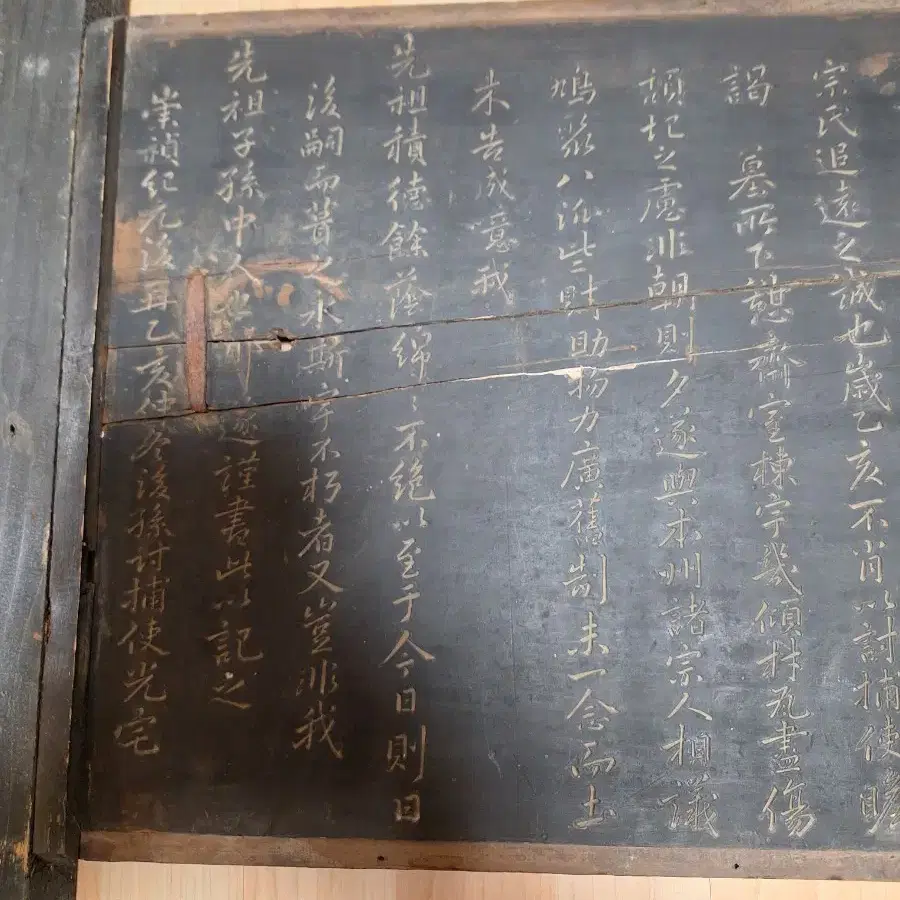 宗氏追遠之誠也歲乙亥不肖以討捕使瞻
謁 墓所下憩齋室棟宇幾傾材瓦盡傷
頹圮之慮非朝則夕遂與本州諸宗人相議
鳩聚八派些財助物力廣舊制未一念而土
木告成噫我
先祖積德餘蔭綿〻不絶以至于今日則日
後嗣而葺之永斯宇不朽者又豈非我
先祖子孫中人耶遂謹書此以記之
崇禎紀元後再乙亥仲冬後孫討捕使光宅